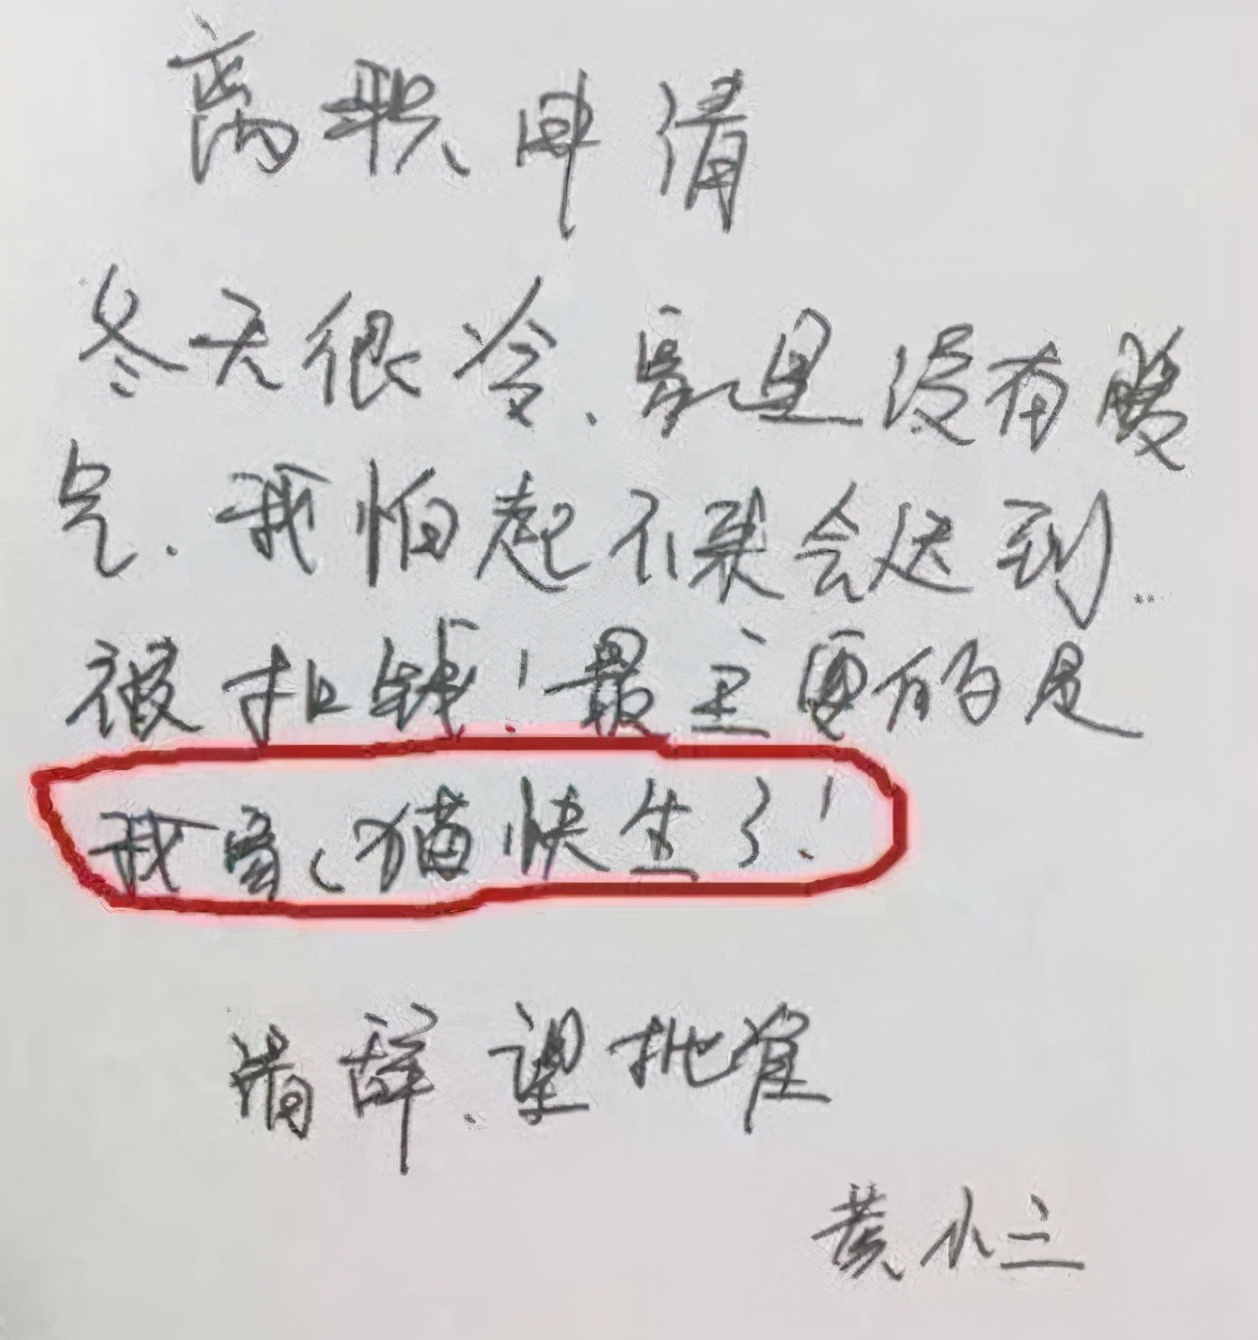 离职申请
冬天很冷、家里没有暖
气.我怕起不来会迟到..
被扣钱!最主要的是
我家、猫快生了!
请辞.望批准
黄小三